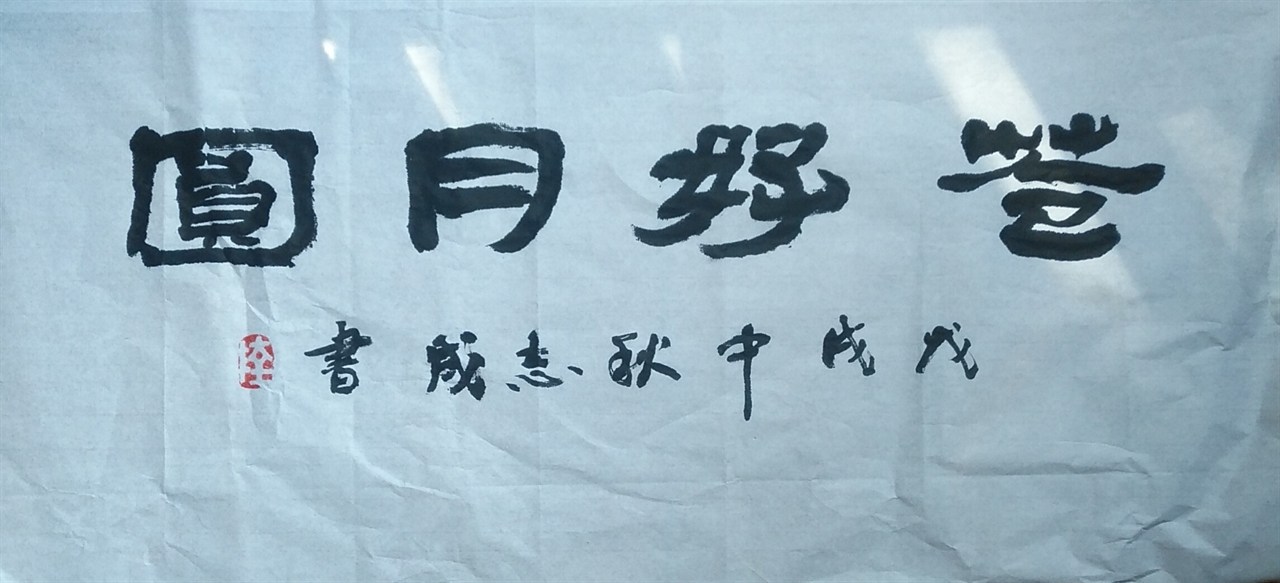 花好月圓
戊戌中秋志成書